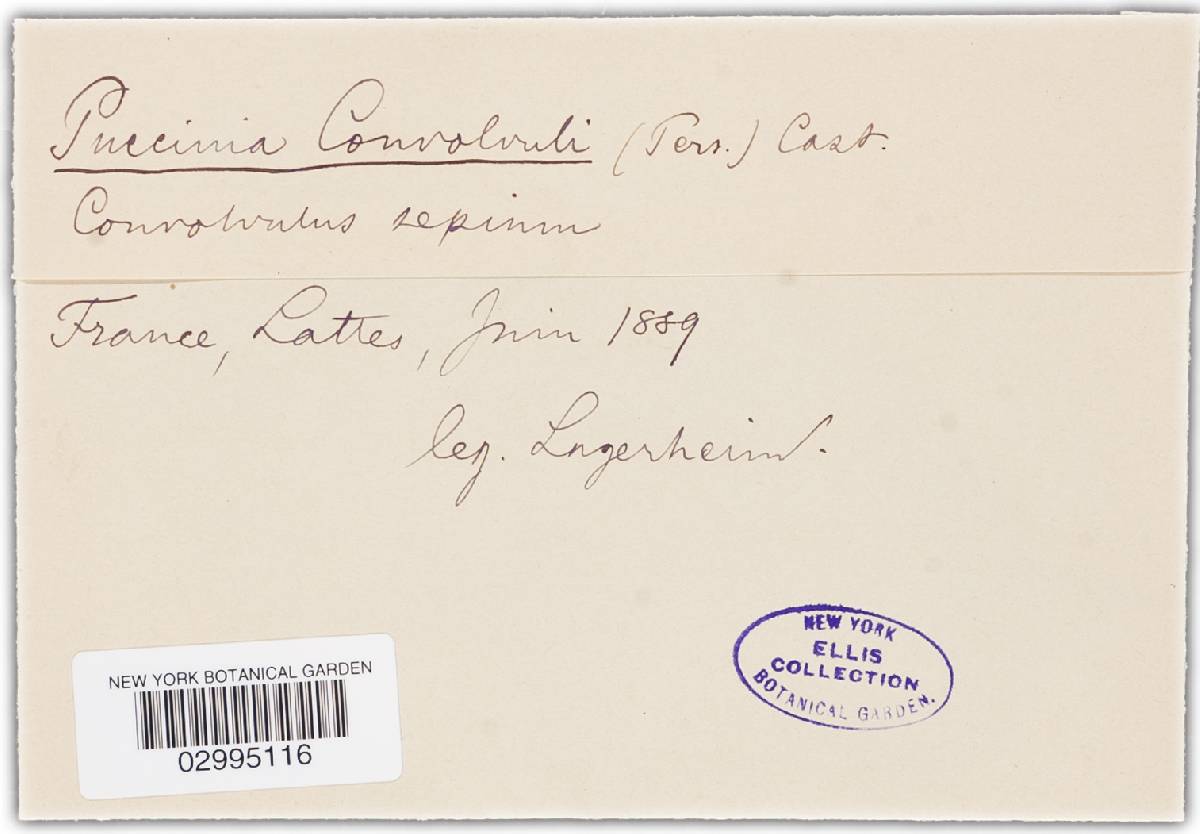 Puccinia Convolvuli (Pers.) Cast.
Convolvulus sepium
France, Lattes, Juin 1889
leg. Lagerheim.
NEW YORK
ELLIS
COLLECTION
BOTANICAL GARDEN.
NEW YORK BOTANICAL GARDEN
02995116